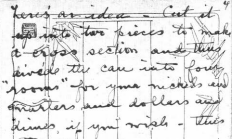 There's an idea - Cut it
up into two pieces to make
a cross section and thus
divide the can into four
"rooms" for your nickels and
quarters and dollars and
dimes if you wish - thus